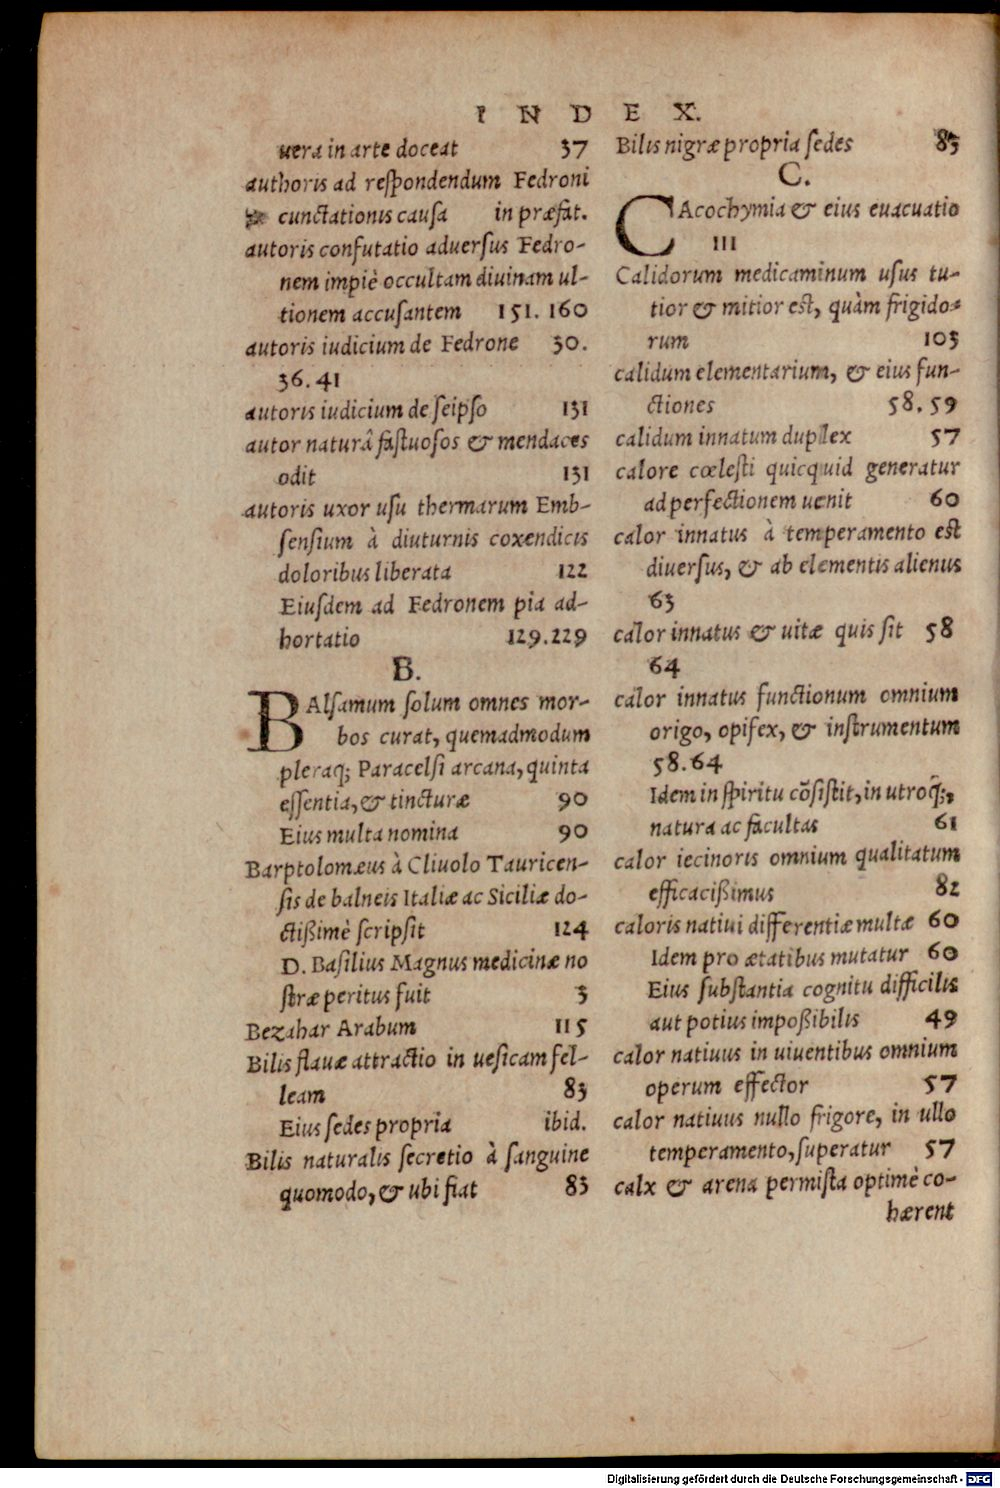 INDEX.
uera in arte doceat 37
authoris ad respondendum Fedroni
cunctationis causa in præfat.
autoris confutatio aduersus Fedro-
nem impiè occultam diuinam ul-
tionem accusantem 151. 160
autoris iudicium de Fedrone 30.
36. 41
autoris iudicium de seipso 131
autor naturâ fastuosos & mendaces
odit 131
autoris uxor usu thermarum Emb-
sensium à diuturnis coxendicis
doloribus liberata 122
Eiusdem ad Fedronem pia ad-
hortatio 129.229
B.
BAlsamum solum omnes mor-
bos curat, quemadmodum
pleraq; Paracelsi arcana, quinta
essentia, & tincturæ 90
Eius multa nomina 90
Barptolomæus à Cliuolo Tauricen-
sis de balneis Italiæ ac Siciliæ do-
ctißimè scripsit 124
D. Basilius Magnus medicinæ no
stræ peritus fuit 3
Bezahar Arabum 115
Bilis flauæ attractio in uesicam fel-
leam 83
Eius sedes propria ibid.
Bilis naturalis secretio à sanguine
quomodo, & ubi fiat 83
Bilis nigræ propria sedes 83
C.
CAcochymia & eius euacuatio
111
Calidorum medicaminum usus tu-
tior & mitior est, quàm frigido-
rum 103
calidum elementarium, & eius fun-
ctiones 58. 59
calidum innatum duplex 57
calore cœlesti quicquid generatur
ad perfectionem uenit 60
calor innatus à temperamento est
diuersus, & ab elementis alienus
63
calor innatus & uitæ quis sit 58
64
calor innatus functionum omnium
origo, opifex, & instrumentum
58. 64
Idem in spiritu cõsistit, in utroq̃;,
natura ac facultas 61
calor iecinoris omnium qualitatum
efficacißimus 82
caloris natiui differentiæ multæ 60
Idem pro ætatibus mutatur 60
Eius substantia cognitu difficilis
aut potius impoßibilis 49
calor natiuus in uiuentibus omnium
operum effector 57
calor natiuus nullo frigore, in ullo
temperamento, superatur 57
calx & arena permista optimè co-
hærent
Digitalisierung gefördert durch die Deutsche Forschungsgemeinschaft - DFG